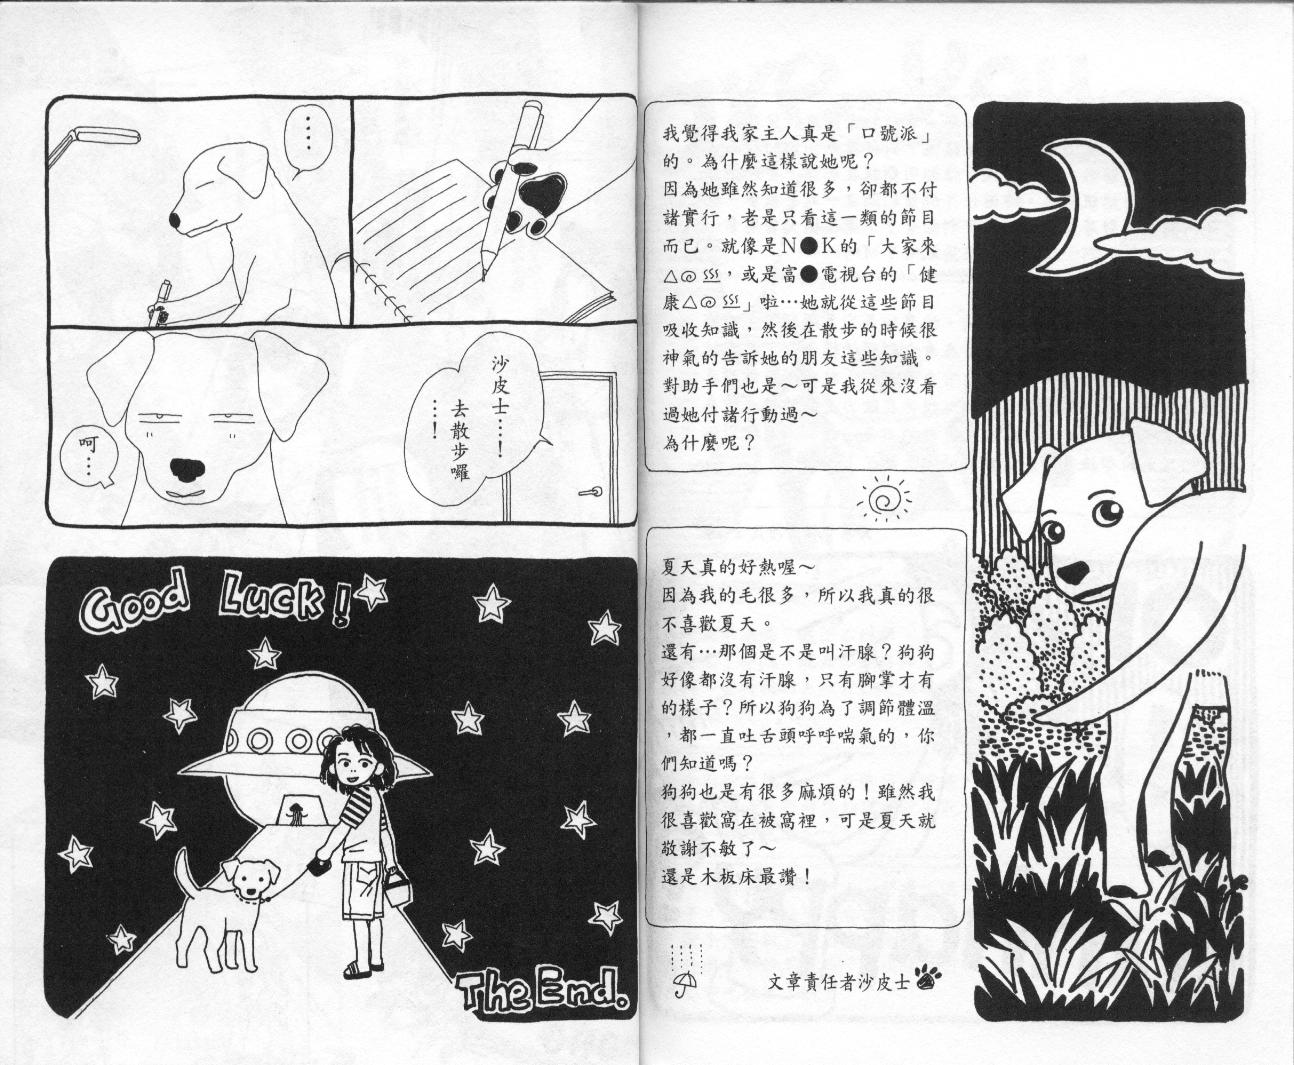 我覺得我家主人真是「口號派」
的。為什麼這樣說她呢？
因為她雖然知道很多，卻都不付
諸實行，老是只看這一類的節目
而已。就像是N●K的「大家來
△@♨，或是富●電視台的「健
康△@♨」啦…她就從這些節目
吸收知識，然後在散步的時候很
神氣的告訴她的朋友這些知識。
對助手們也是～可是我從來沒看
過她付諸行動過～
為什麼呢？
夏天真的好熱喔～
因為我的毛很多，所以我真的很
不喜歡夏天。
還有…那個是不是叫汗腺？狗狗
好像都沒有汗腺，只有腳掌才有
的樣子？所以狗狗為了調節體溫
，都一直吐舌頭呼呼喘氣的，你
們知道嗎？
狗狗也是有很多麻煩的！雖然我
很喜歡窩在被窩裡，可是夏天就
敬謝不敏了～
還是木板床最讚！
文章責任者沙皮士
…
沙皮士…！
去散步囉
…！
呵…
Good Luck!
The End.